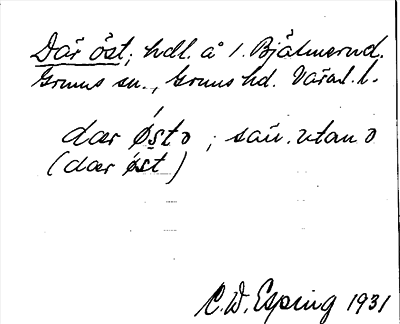 Där öst; hdl. å 1. Bjälmerud.
Grums sn., Grums hd. Värml. l.
dær øst ɔ ; säll. utan ɔ
(dær øst)
C. W. Esping 1931